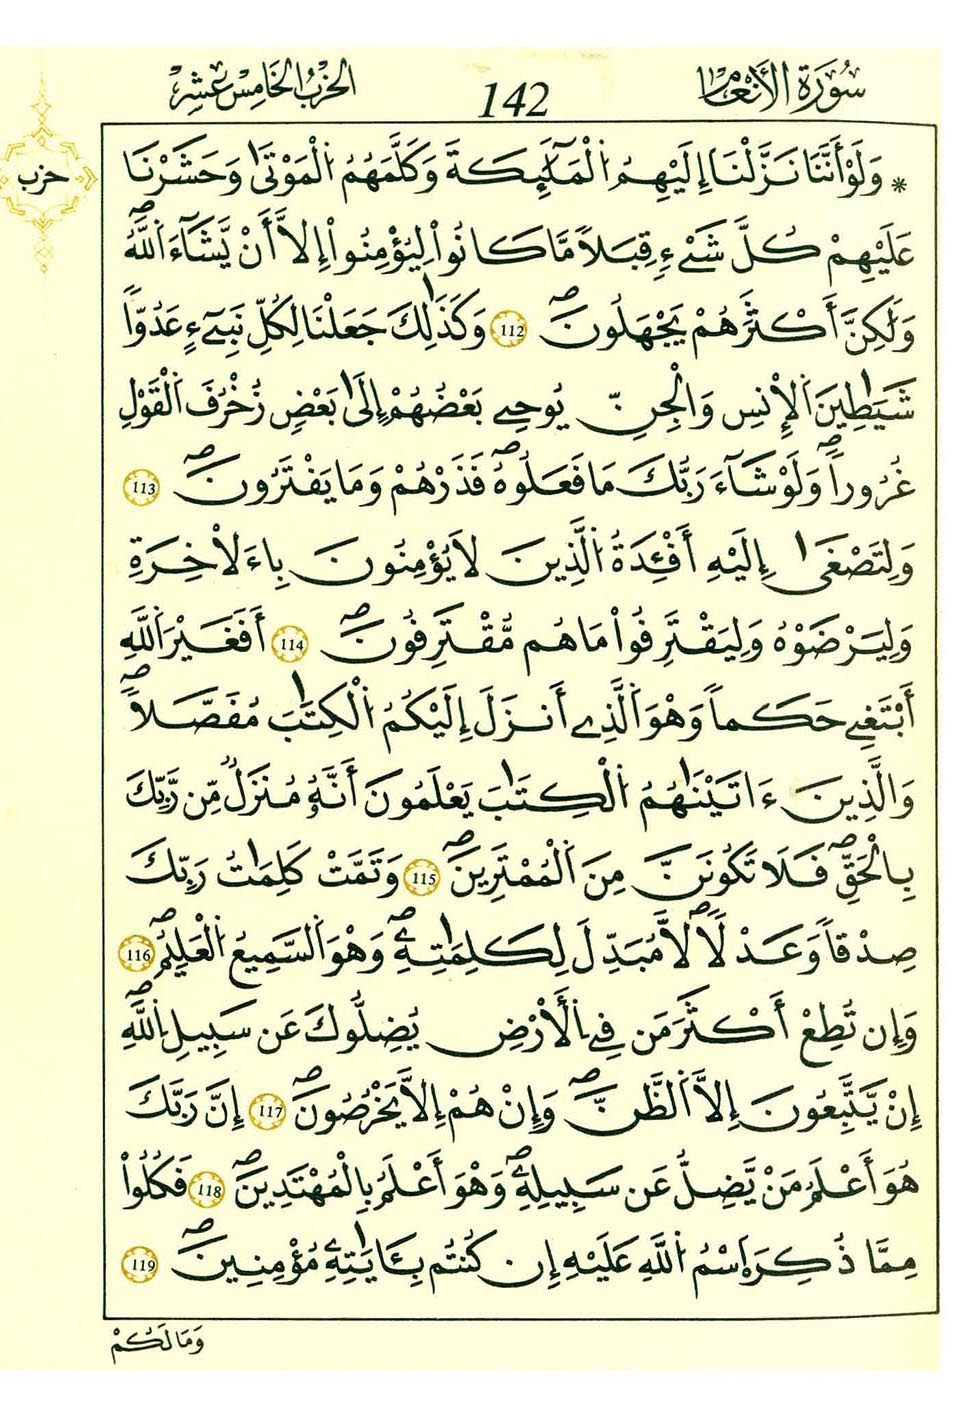 سُورَةُ الْأَنْعَامِ 142 الحِزْبُ الخَامِسَ عَشَرَ
حزب
* وَلَوْ أَنَّنَا نَزَّلْنَا إِلَيْهِمُ الْمَلَٰٓئِكَةَ وَكَلَّمَهُمُ الْمَوْتَىٰ وَحَشَرْنَا
عَلَيْهِمْ كُلَّ شَيْءٍ قِبَلاً مَّا كَانُواْ لِيُؤْمِنُواْ إِلَّا أَنْ يَّشَآءَ اَللَّهُۖ
وَلَٰكِنَّ أَكْثَرَهُمْ يَجْهَلُونَۖ 112 وَكَذَٰلِكَ جَعَلْنَا لِكُلِّ نَبِيٓءٍ عَدُوّاً
شَيَٰطِينَ اَلْإِنسِ وَالْجِنِّ يُوحِے بَعْضُهُمْ إِلَىٰ بَعْضٍ زُخْرُفَ اَلْقَوْلِ
غُرُوراًۖ وَلَوْ شَآءَ رَبُّكَ مَا فَعَلُوهُۖ فَذَرْهُمْ وَمَا يَفْتَرُونَۖ 113
وَلِتَصْغَىٰٓ إِلَيْهِ أَفْـِٕدَةُ اُلَّذِينَ لَا يُؤْمِنُونَ بِالَاخِرَةِ
وَلِيَرْضَوْهُ وَلِيَقْتَرِفُواْ مَا هُم مُّقْتَرِفُونَۖ 114 أَفَغَيْرَ اَللَّهِ
أَبْتَغِے حَكَماً وَهُوَ اَلَّذِےٓ أَنزَلَ إِلَيْكُمُ اُلْكِتَٰبَ مُفَصَّلاًۖ
وَالَّذِينَ ءَاتَيْنَٰهُمُ اُلْكِتَٰبَ يَعْلَمُونَ أَنَّهُۥ مُنزَلٌ مِّن رَّبِّكَ
بِالْحَقِّۖ فَلَا تَكُونَنَّ مِنَ اَلْمُمْتَرِينَۖ 115 وَتَمَّتْ كَلِمَٰتُ رَبِّكَ
صِدْقاً وَعَدْلاًۖ لَّا مُبَدِّلَ لِكَلِمَٰتِهِۦۖ وَهُوَ اَلسَّمِيعُ اُلْعَلِيمُۖ 116
وَإِن تُطِعْ أَكْثَرَ مَن فِے اِلْأَرْضِ يُضِلُّوكَ عَن سَبِيلِ اِللَّهِۖ
إِنْ يَّتَّبِعُونَ إِلَّا اَلظَّنَّۖ وَإِنْ هُمْ إِلَّا يَخْرُصُونَۖ 117 إِنَّ رَبَّكَ
هُوَ أَعْلَمُ مَنْ يَّضِلُّ عَن سَبِيلِهِۦۖ وَهُوَ أَعْلَمُ بِالْمُهْتَدِينَۖ 118 فَكُلُواْ
مِمَّا ذُكِرَ اَسْمُ اُللَّهِ عَلَيْهِ إِن كُنتُم بِـَٔايَٰتِهِۦ مُؤْمِنِينَۖ 119
وَمَا لَكُمْ